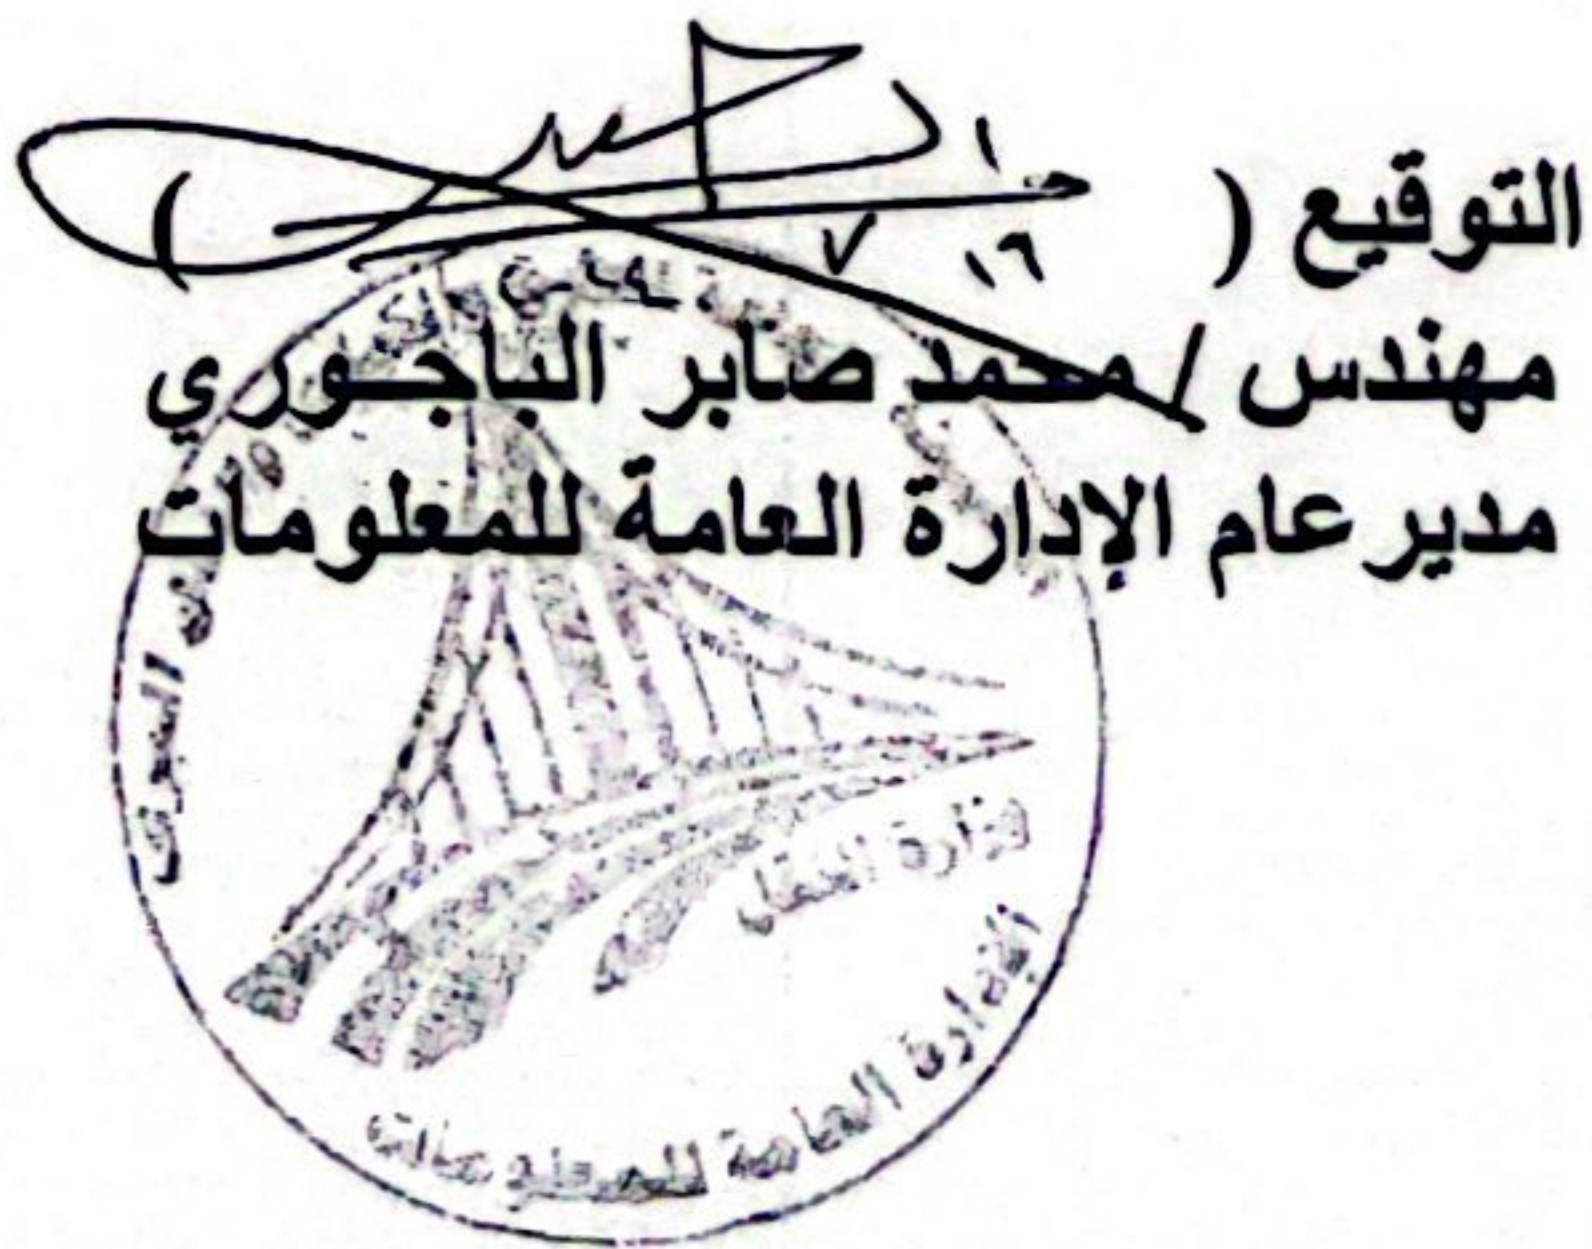 التوقيع (                    )
١٦ ٧
مهندس / محمد صابر الباجـوري
مدير عام الإدارة العامة للمعلومات
وزارة النقل
الإدارة العامة للمعلومات